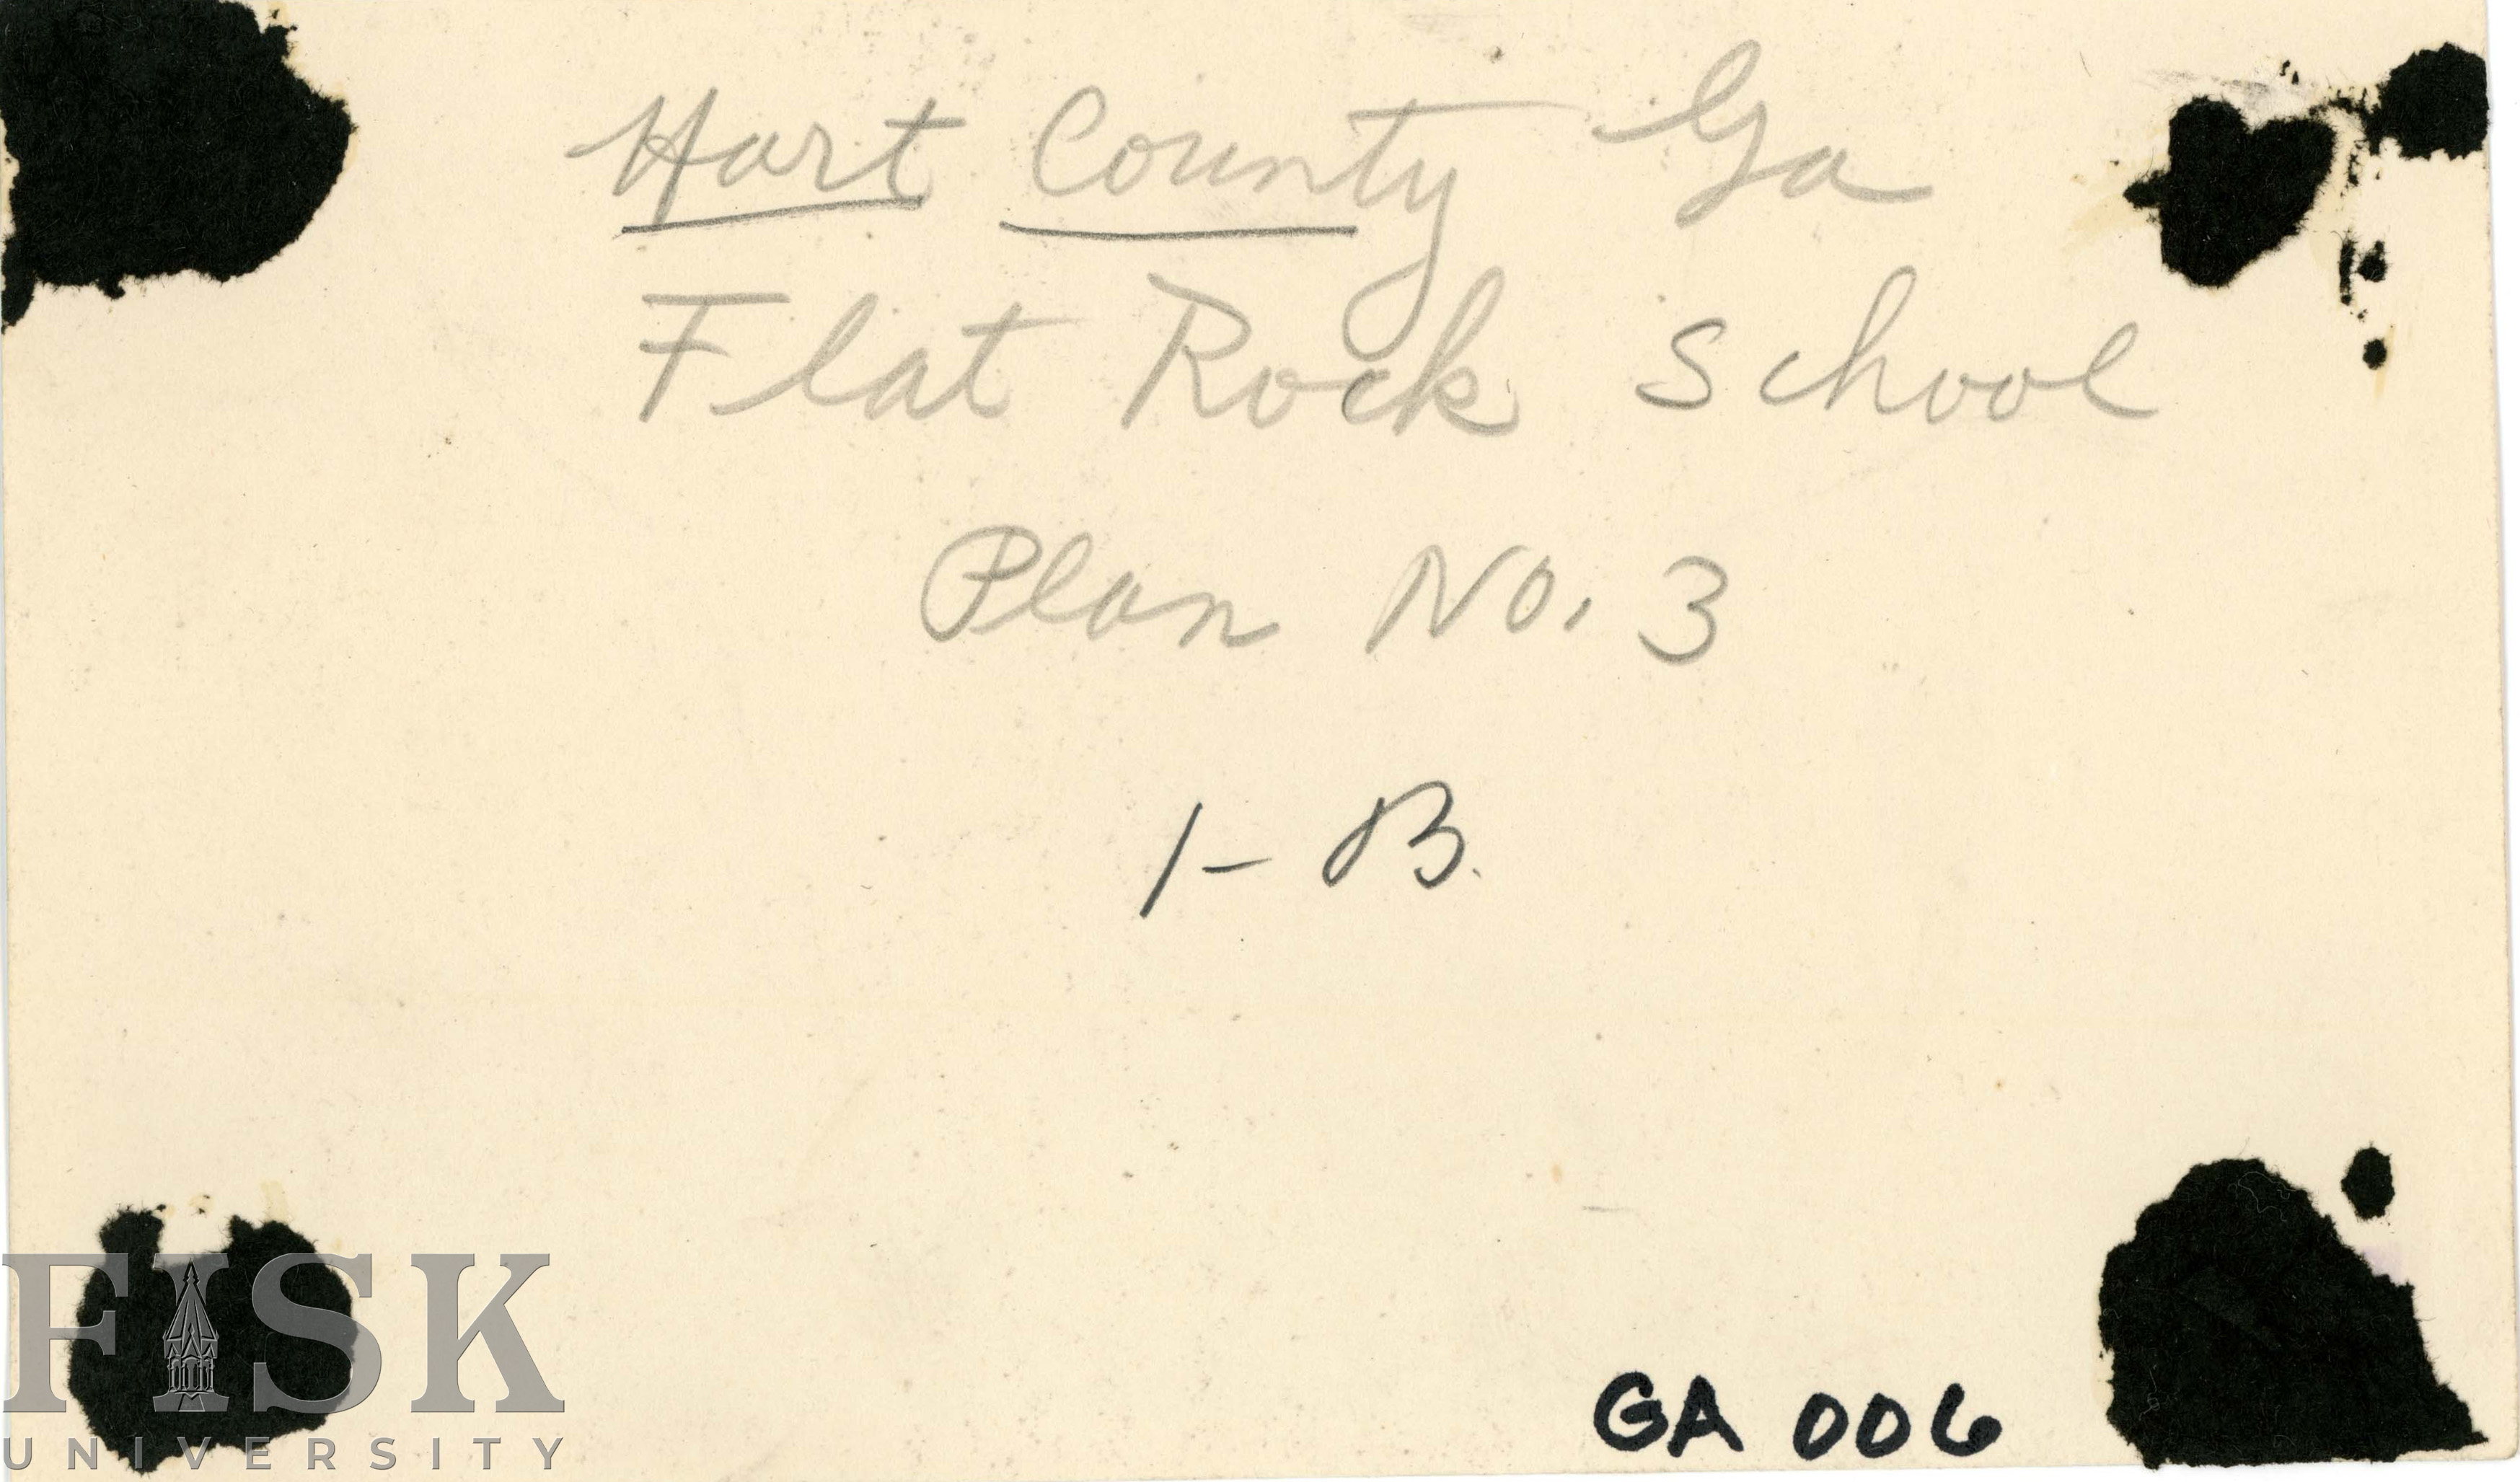 Hart County Ga
Flat Rock School
Plan No. 3
1- B.
GA 006
FISK
UNIVERSITY